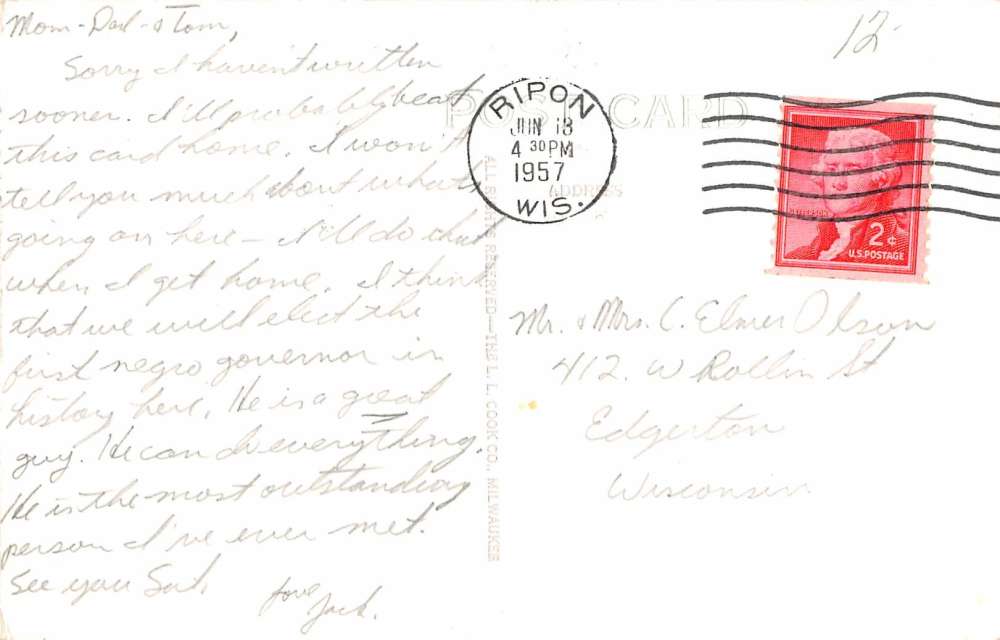 Mom - Dad - & Tom,
Sorry I haven't written
sooner. I'll probably beat
this card home. I won't
tell you much about what's
going on here – I'll do that
when I get home. I think
that we will elect the
first negro governor in
history here. He is a great
guy. He can do everything.
He is the most outstanding
person I've ever met.
See you Sat.
Love
Jack.
12
POST CARD
ADDRESS
RIPON
JUN 13
4 30 PM
1957
WIS.
JEFFERSON
2¢
U.S. POSTAGE
ALL RIGHTS RESERVED—THE L. L. COOK CO., MILWAUKEE
Mr. & Mrs. C. Elmer Olson
412. W Rollin St
Edgerton
Wisconsin